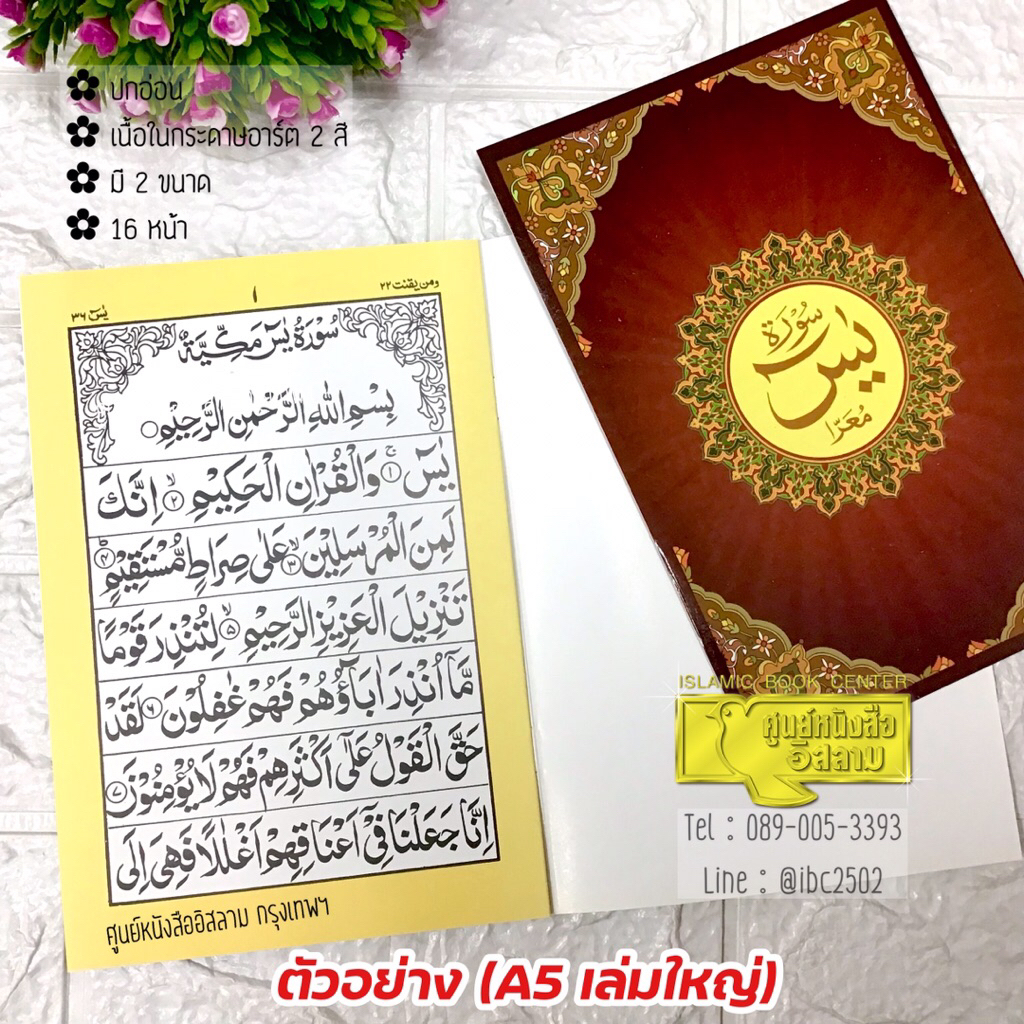 ✿ ปกอ่อน
✿ เนื้อในกระดาษอาร์ต 2 สี
✿ มี 2 ขนาด
✿ 16 หน้า
ومن یقنت ٢٢
١
یٰسٓ ٣٦
سُوْرَةُ یٰسٓ مَكِّيَّةٌ
بِسْمِ اللهِ الرَّحْمٰنِ الرَّحِيْمِ ○
يٰسٓ ۚ ﴿١﴾ وَالْقُرْاٰنِ الْحَكِيْمِ ۙ ﴿٢﴾ اِنَّكَ
لَمِنَ الْمُرْسَلِيْنَ ۙ ﴿٣﴾ عَلٰى صِرَاطٍ مُّسْتَقِيْمٍ ؕ ﴿٤﴾
تَنْزِيْلَ الْعَزِيْزِ الرَّحِيْمِ ۙ ﴿٥﴾ لِتُنْذِرَ قَوْمًا
مَّاۤ اُنْذِرَ اٰبَآؤُهُمْ فَهُمْ غٰفِلُوْنَ ﴿٦﴾ لَقَدْ
حَقَّ الْقَوْلُ عَلٰٓى اَكْثَرِهِمْ فَهُمْ لَا يُؤْمِنُوْنَ ﴿٧﴾
اِنَّا جَعَلْنَا فِيْٓ اَعْنَاقِهِمْ اَغْلٰلًا فَهِيَ اِلَى
ศูนย์หนังสืออิสลาม กรุงเทพฯ
سُورَة
يس
مُعَرَّا
ISLAMIC BOOK CENTER
ศูนย์หนังสือ
อิสลาม
Tel : 089-005-3393
Line : @ibc2502
ตัวอย่าง (A5 เล่มใหญ่)